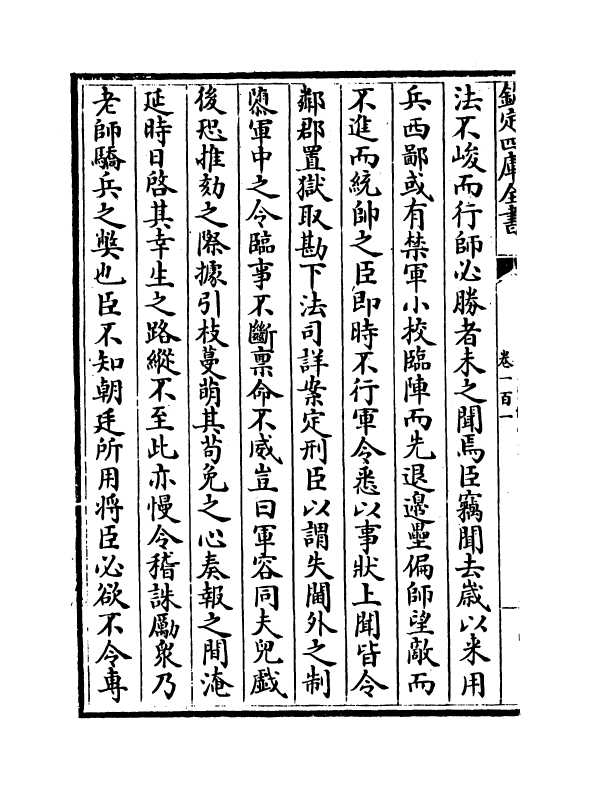 欽定四庫全書
卷一百一
法不峻而行師必勝者未之聞焉臣竊聞去歲以来用
兵西鄙或有禁軍小校臨陣而先退邊壘偏師望敵而
不進而統帥之臣即時不行軍令悉以事狀上聞皆令
鄰郡置獄取勘下法司詳案定刑臣以謂失閫外之制
隳軍中之令臨事不斷稟命不威豈曰軍容同夫兒戲
後恐推劾之際據引枝蔓萌其苟免之心奏報之間淹
延時日啓其幸生之路縱不至此亦慢令稽誅勵衆乃
老師驕兵之獘也臣不知朝廷所用將臣必欲不令專